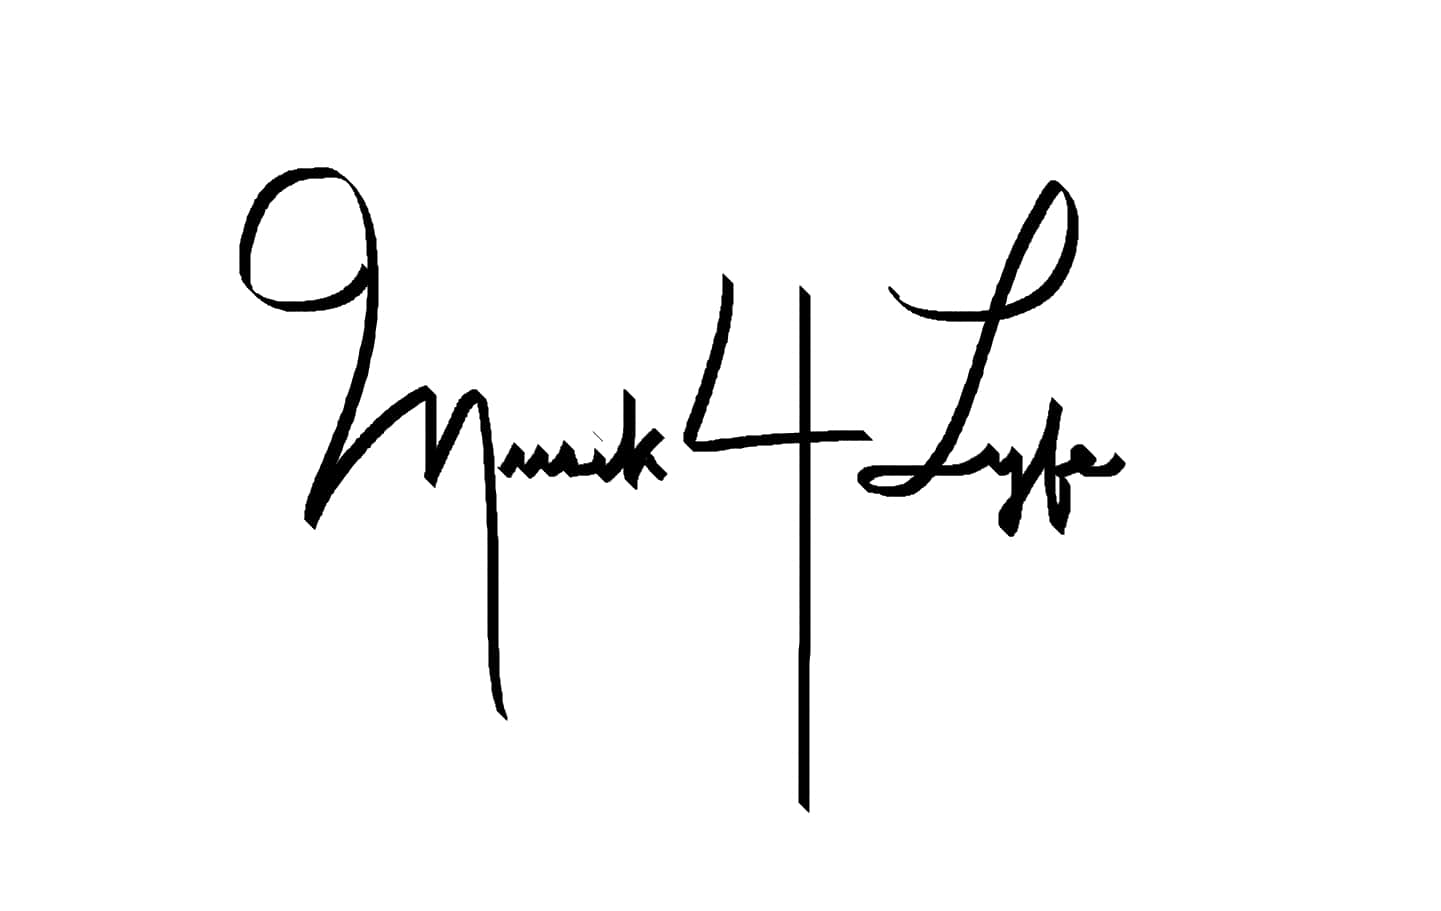 Musik 4 Lyfe